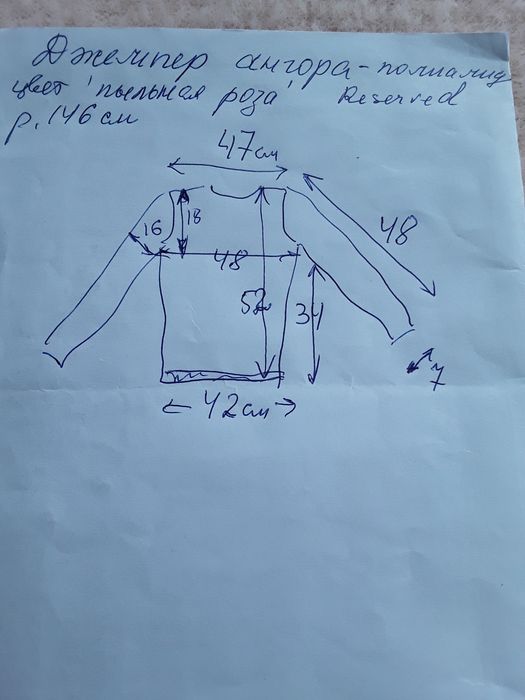 Джемпер ангора-полиамид
цвет 'пыльная роза' Reserved
р. 146 см
47 см
16
18
48
48
52
34
7
42 см